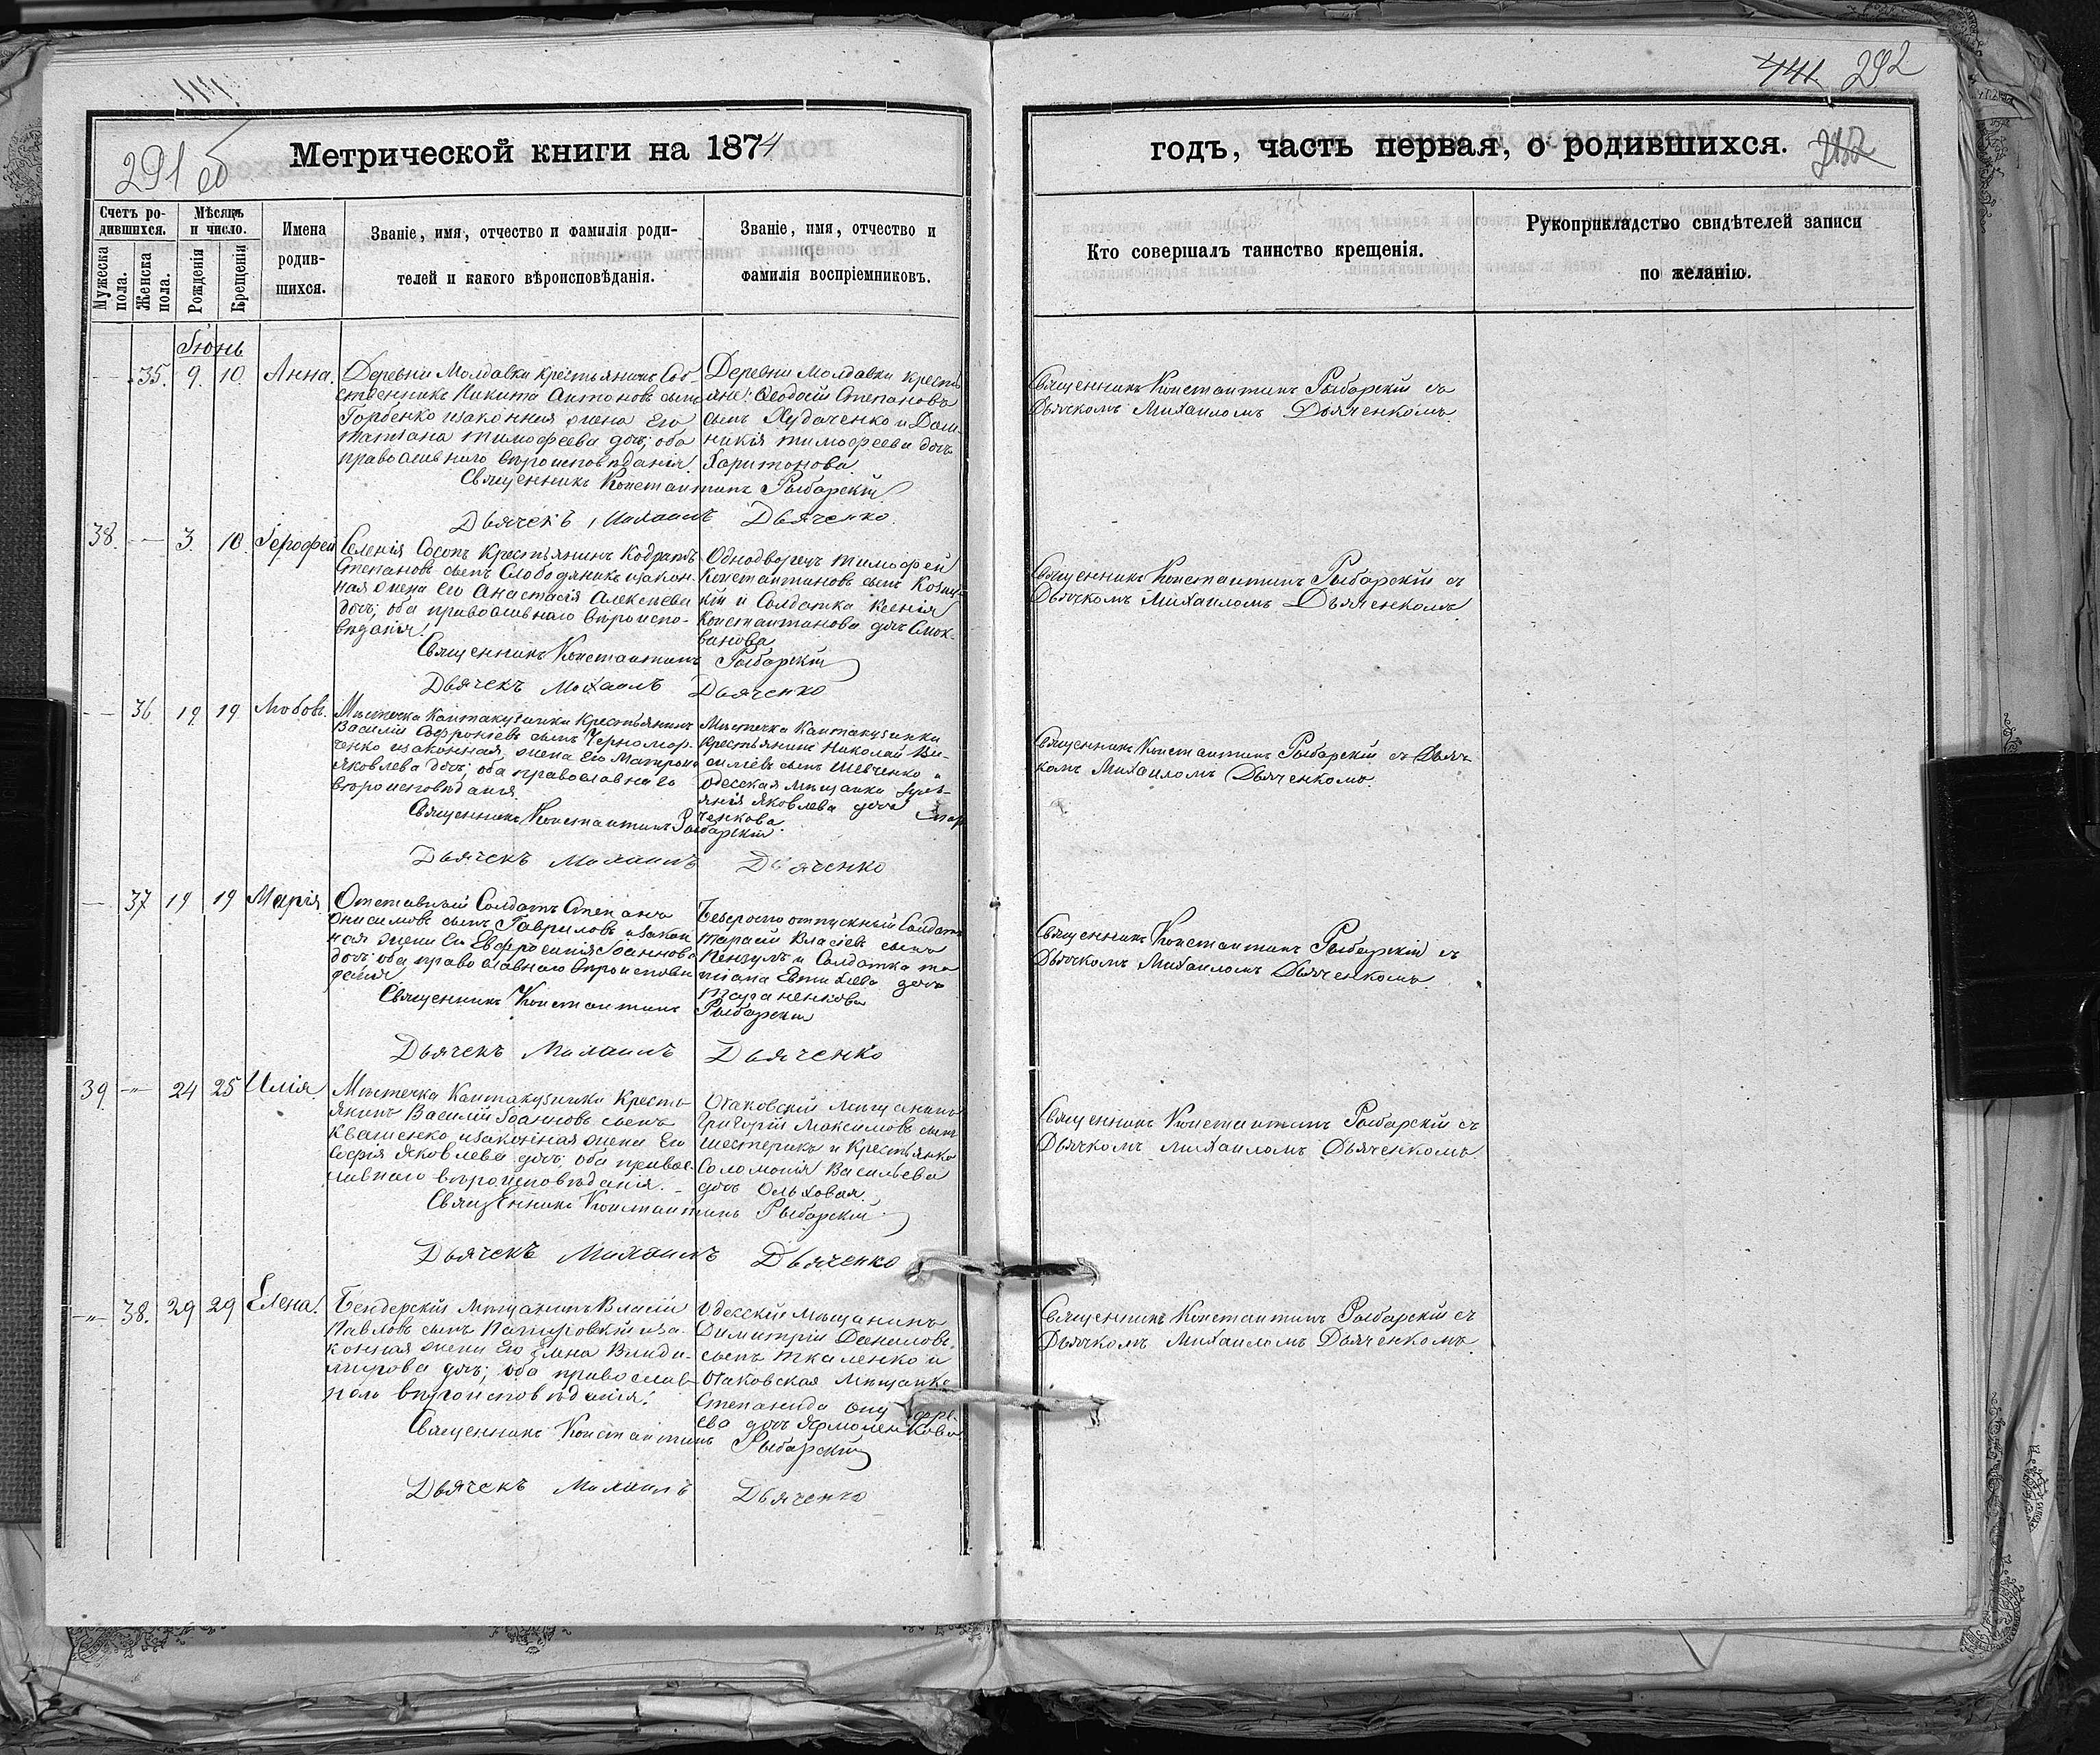 291 об
Метрической книги на 1874
Счетъ ро-
дившихся.
Мѣсяцъ
и число.
Имена
родив-
шихся.
Званіе, имя, отчество и фамилія роди-
телей и какого вѣроисповѣданія.
Званіе, имя, отчество и
фамилія воспріемниковъ.
Мужеска
пола.
Женска
пола.
Рожденія
Крещенія
Іюнь
35. 9. 10. Анна.
Деревни Молдавки Крестьянинъ Соб-
ственникъ Никита Антоновъ сынъ
Горбенко изаконная жена Его
Татіана Тимофеева дочь; оба
православнаго вѣроисповѣданія.
Деревни Молдавки крестья
яне: Ѳеодосій Степановъ
сынъ Худаченко и Дом-
никія Тимофеева дочь
Харитонова.
Священникъ Константинъ Рыбарскій
Дьячекъ Михаилъ Дьяченко.
38. 3. 10. Іерофей
Селенія Сосопъ Крестьянинъ Кодратъ
Степановъ сынъ Слободяникъ изакон-
ная жена его Анастасія Алексѣева
дочь; оба православнаго вѣроиспо-
вѣданія.
Однодворецъ Тимофей
Константиновъ сынъ Козиц-
кій и Солдатка Ксенія
Константинова дочь Смок-
ванова
Священникъ Константинъ Рыбарскій
Дьячекъ Михаилъ Дьяченко
36. 19 19 Любовь.
Мѣстечка Кантакузинки Крестьянинъ
Василій Софроніевъ сынъ Черномор-
ченко изаконная жена Его Матрона
Яковлева дочь; оба православнаго
вѣроисповѣданія.
Мѣстечка Кантакузинки
Крестьянинъ Николай Ва-
силіевъ сынъ Шевченко и
Одесская Мѣщанка Іулі-
анія Яковлева дочь
ченкова.
Священникъ Константинъ Рыбарскій
Дьячекъ Михаилъ Дьяченко
37 19 19 Марія
Отставный Солдатъ Степанъ
Онисимовъ сынъ Гавриловъ изакон
ная жена Его Евфросинія Іоаннова
дочь; оба православнаго вѣроисповѣ
данія
Безсрочноотпускный Солдатъ
Тарасій Власіевъ сынъ
и Солдатка Та
тіана Евтихіева дочь
Тараненкова
Священникъ Константинъ Рыбарскій
Дьячекъ Михаилъ Дьяченко
39. 24 25 Илія.
Мѣстечка Кантакузинки Кресть-
янинъ Василій Іоанновъ сынъ
Квашенко изаконная жена Его
Софія Яковлева дочь; оба правос-
лавнаго вѣроисповѣданія.
Очаковскій Мѣщанинъ
Григорій Максимовъ сынъ
Шестерикъ и Крестьянка
Соломонія Васильева
дочь Ольховая.
Священникъ Константинъ Рыбарскій
Дьячекъ Михаилъ Дьяченко
38. 29 29 Елена.
Бендерскій Мѣщанинъ Власій
Павловъ сынъ иза-
конная жена Его Елена Влади-
мирова дочь; оба православ-
наго вѣроисповѣданія.
Одесскій Мѣщанинъ
Димитрій Даниловъ
сынъ Ткаленко и
Очаковская Мѣщанка
Степанида Онуфрі-
ева дочь Ярмоленкова
Священникъ Константинъ Рыбарскій
Дьячекъ Михаилъ Дьяченко
441. 292
годъ, часть первая, о родившихся.
Кто совершалъ таинство крещенія.
Рукоприкладство свидѣтелей записи
по желанію.
Священникъ Константинъ Рыбарскій съ
Дьячкомъ Михаиломъ Дьяченкомъ
Священникъ Константинъ Рыбарскій съ
Дьячкомъ Михаиломъ Дьяченкомъ
Священникъ Константинъ Рыбарскій съ Дьяч-
комъ Михаиломъ Дьяченкомъ.
Священникъ Константинъ Рыбарскій съ
Дьячкомъ Михаиломъ Дьяченкомъ.
Священникъ Константинъ Рыбарскій съ
Дьячкомъ Михаиломъ Дьяченкомъ.
Священникъ Константинъ Рыбарскій съ
Дьячкомъ Михаиломъ Дьяченкомъ.